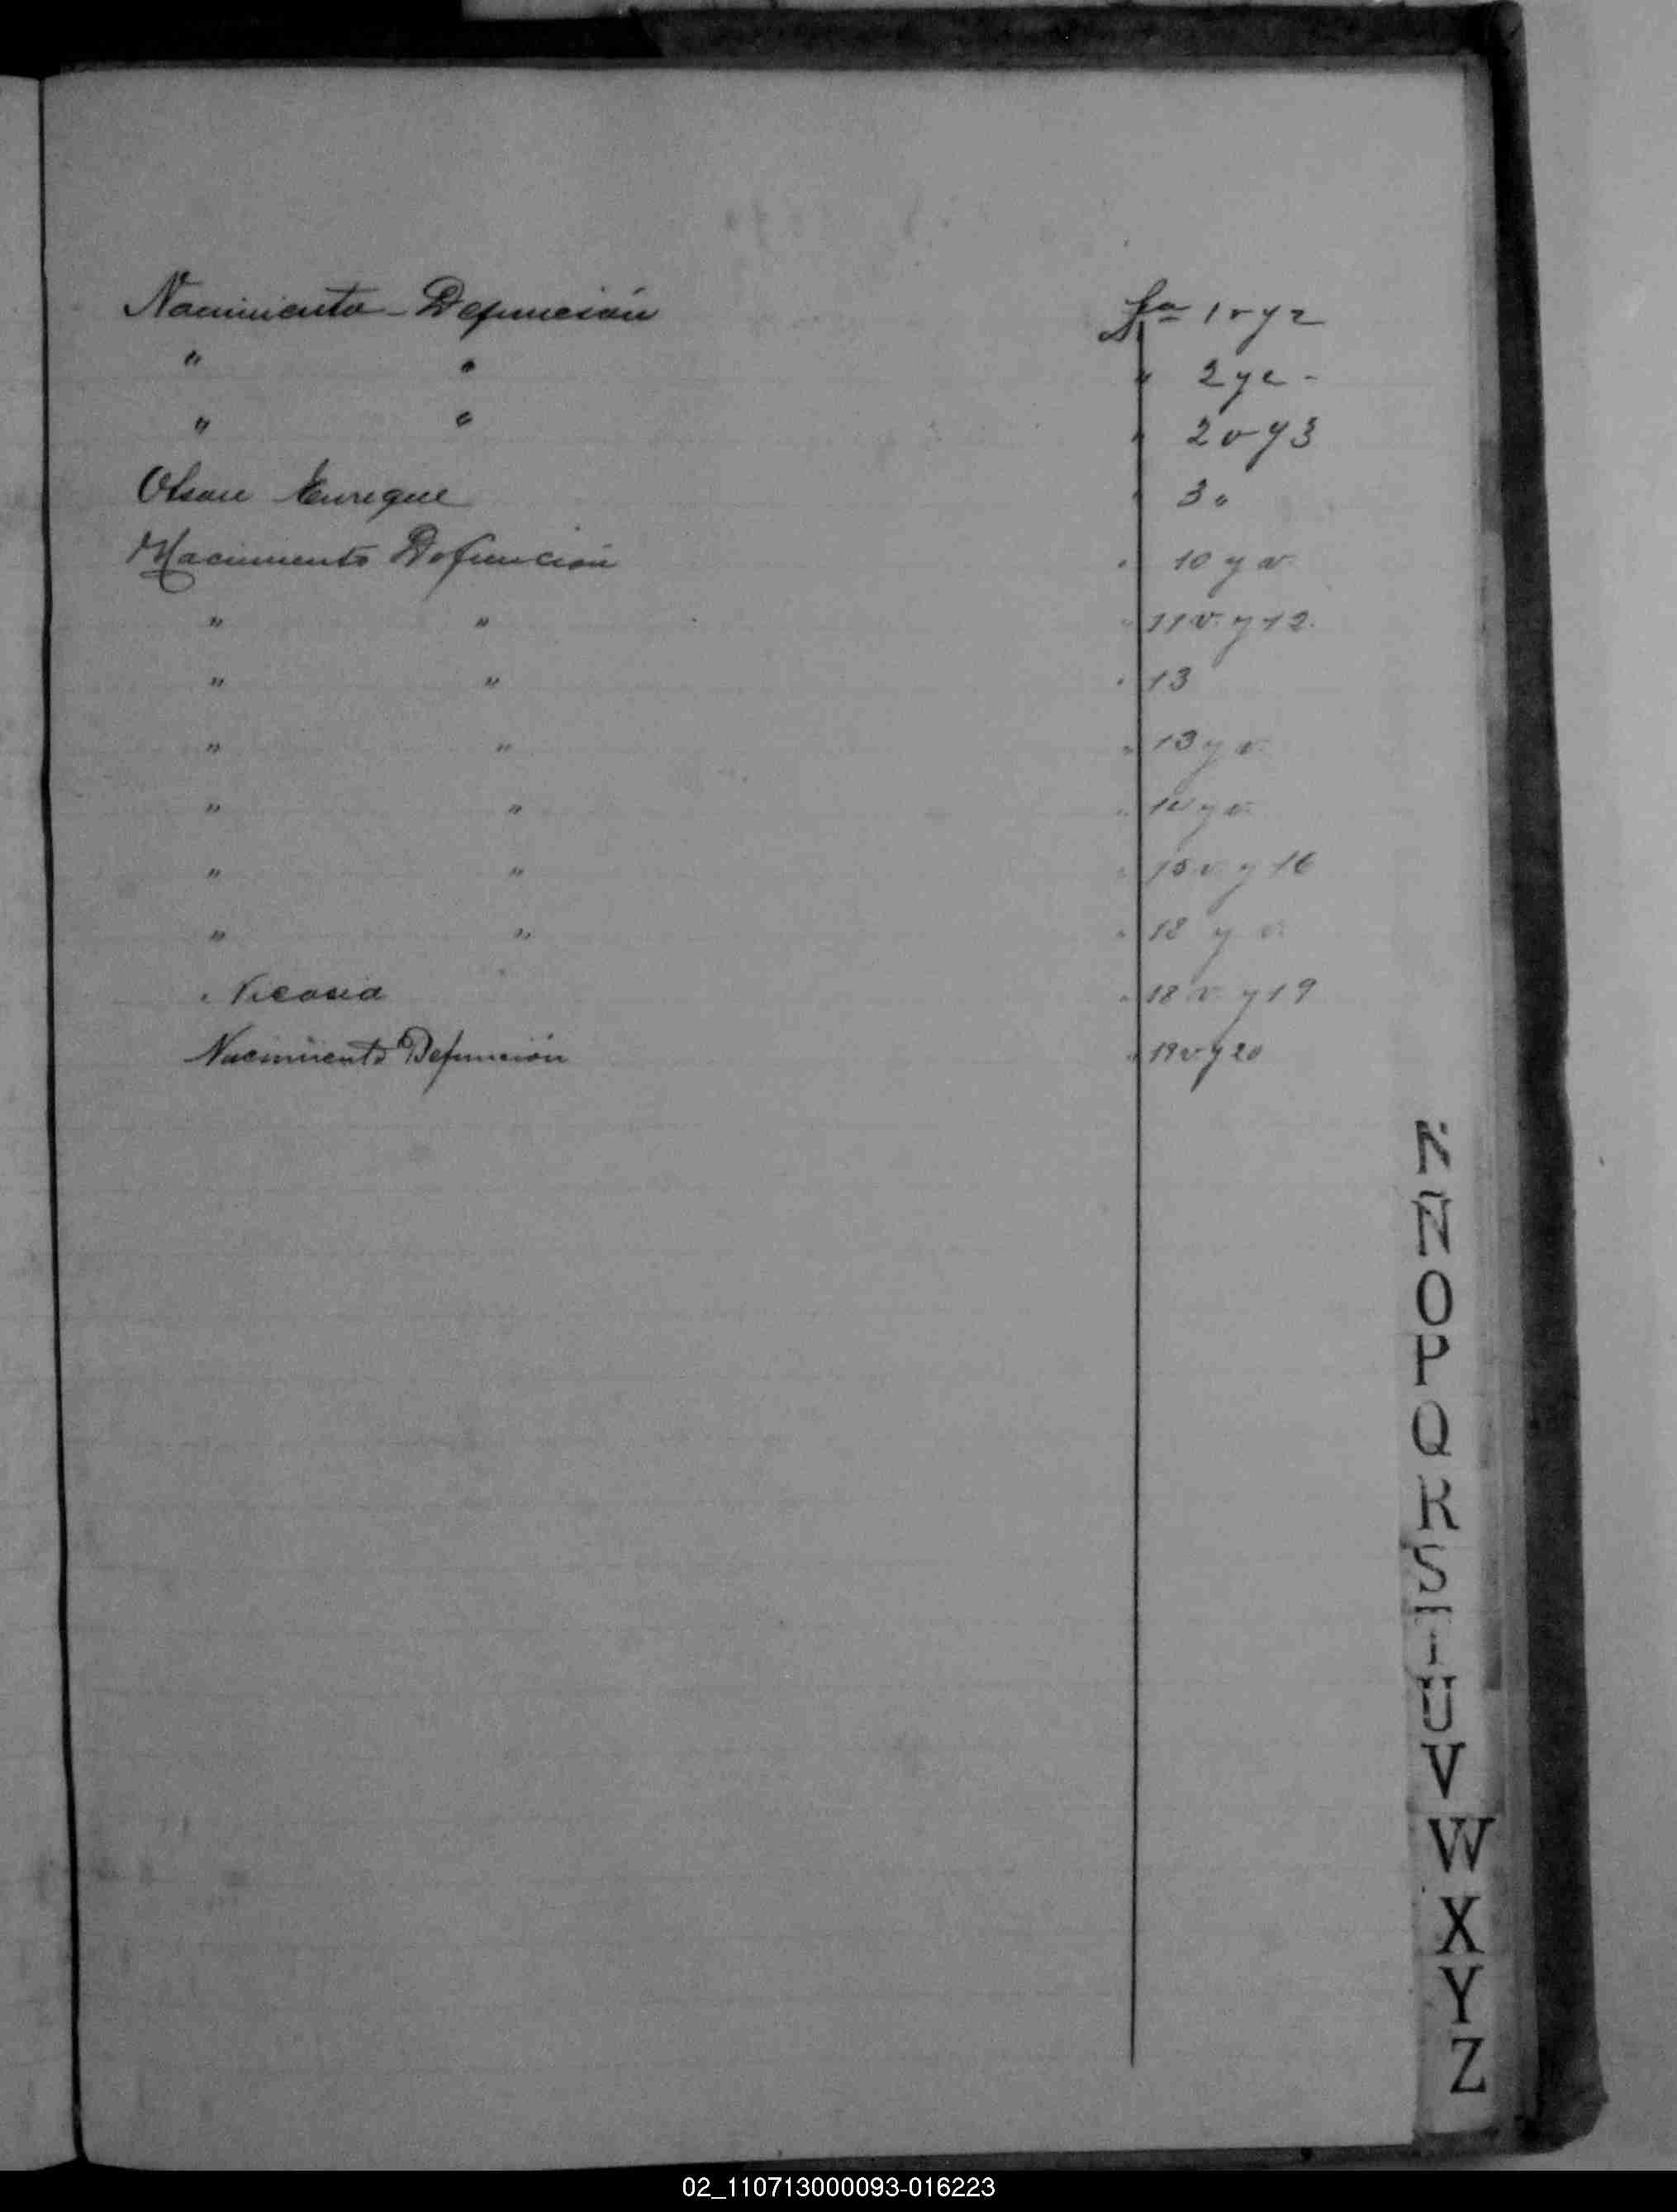 Nacimiento - Defunción fo 1 v y 2
" " " 2 y v -
" " " 2 v y 3
Olsau Enrique " 3 v
Nacimiento Defunción " 10 y v.
" " " 11 v. y 12.
" " " 13
" " " 13 y v.
" " " 14 y v.
" " " 15 v. y 16
" " " 18 y v.
" Nicasia " 18 v. y 19
Nacimiento Defunción " 19 v y 20
N
Ñ
O
P
Q
R
S
T
U
V
W
X
Y
Z
02_110713000093-016223